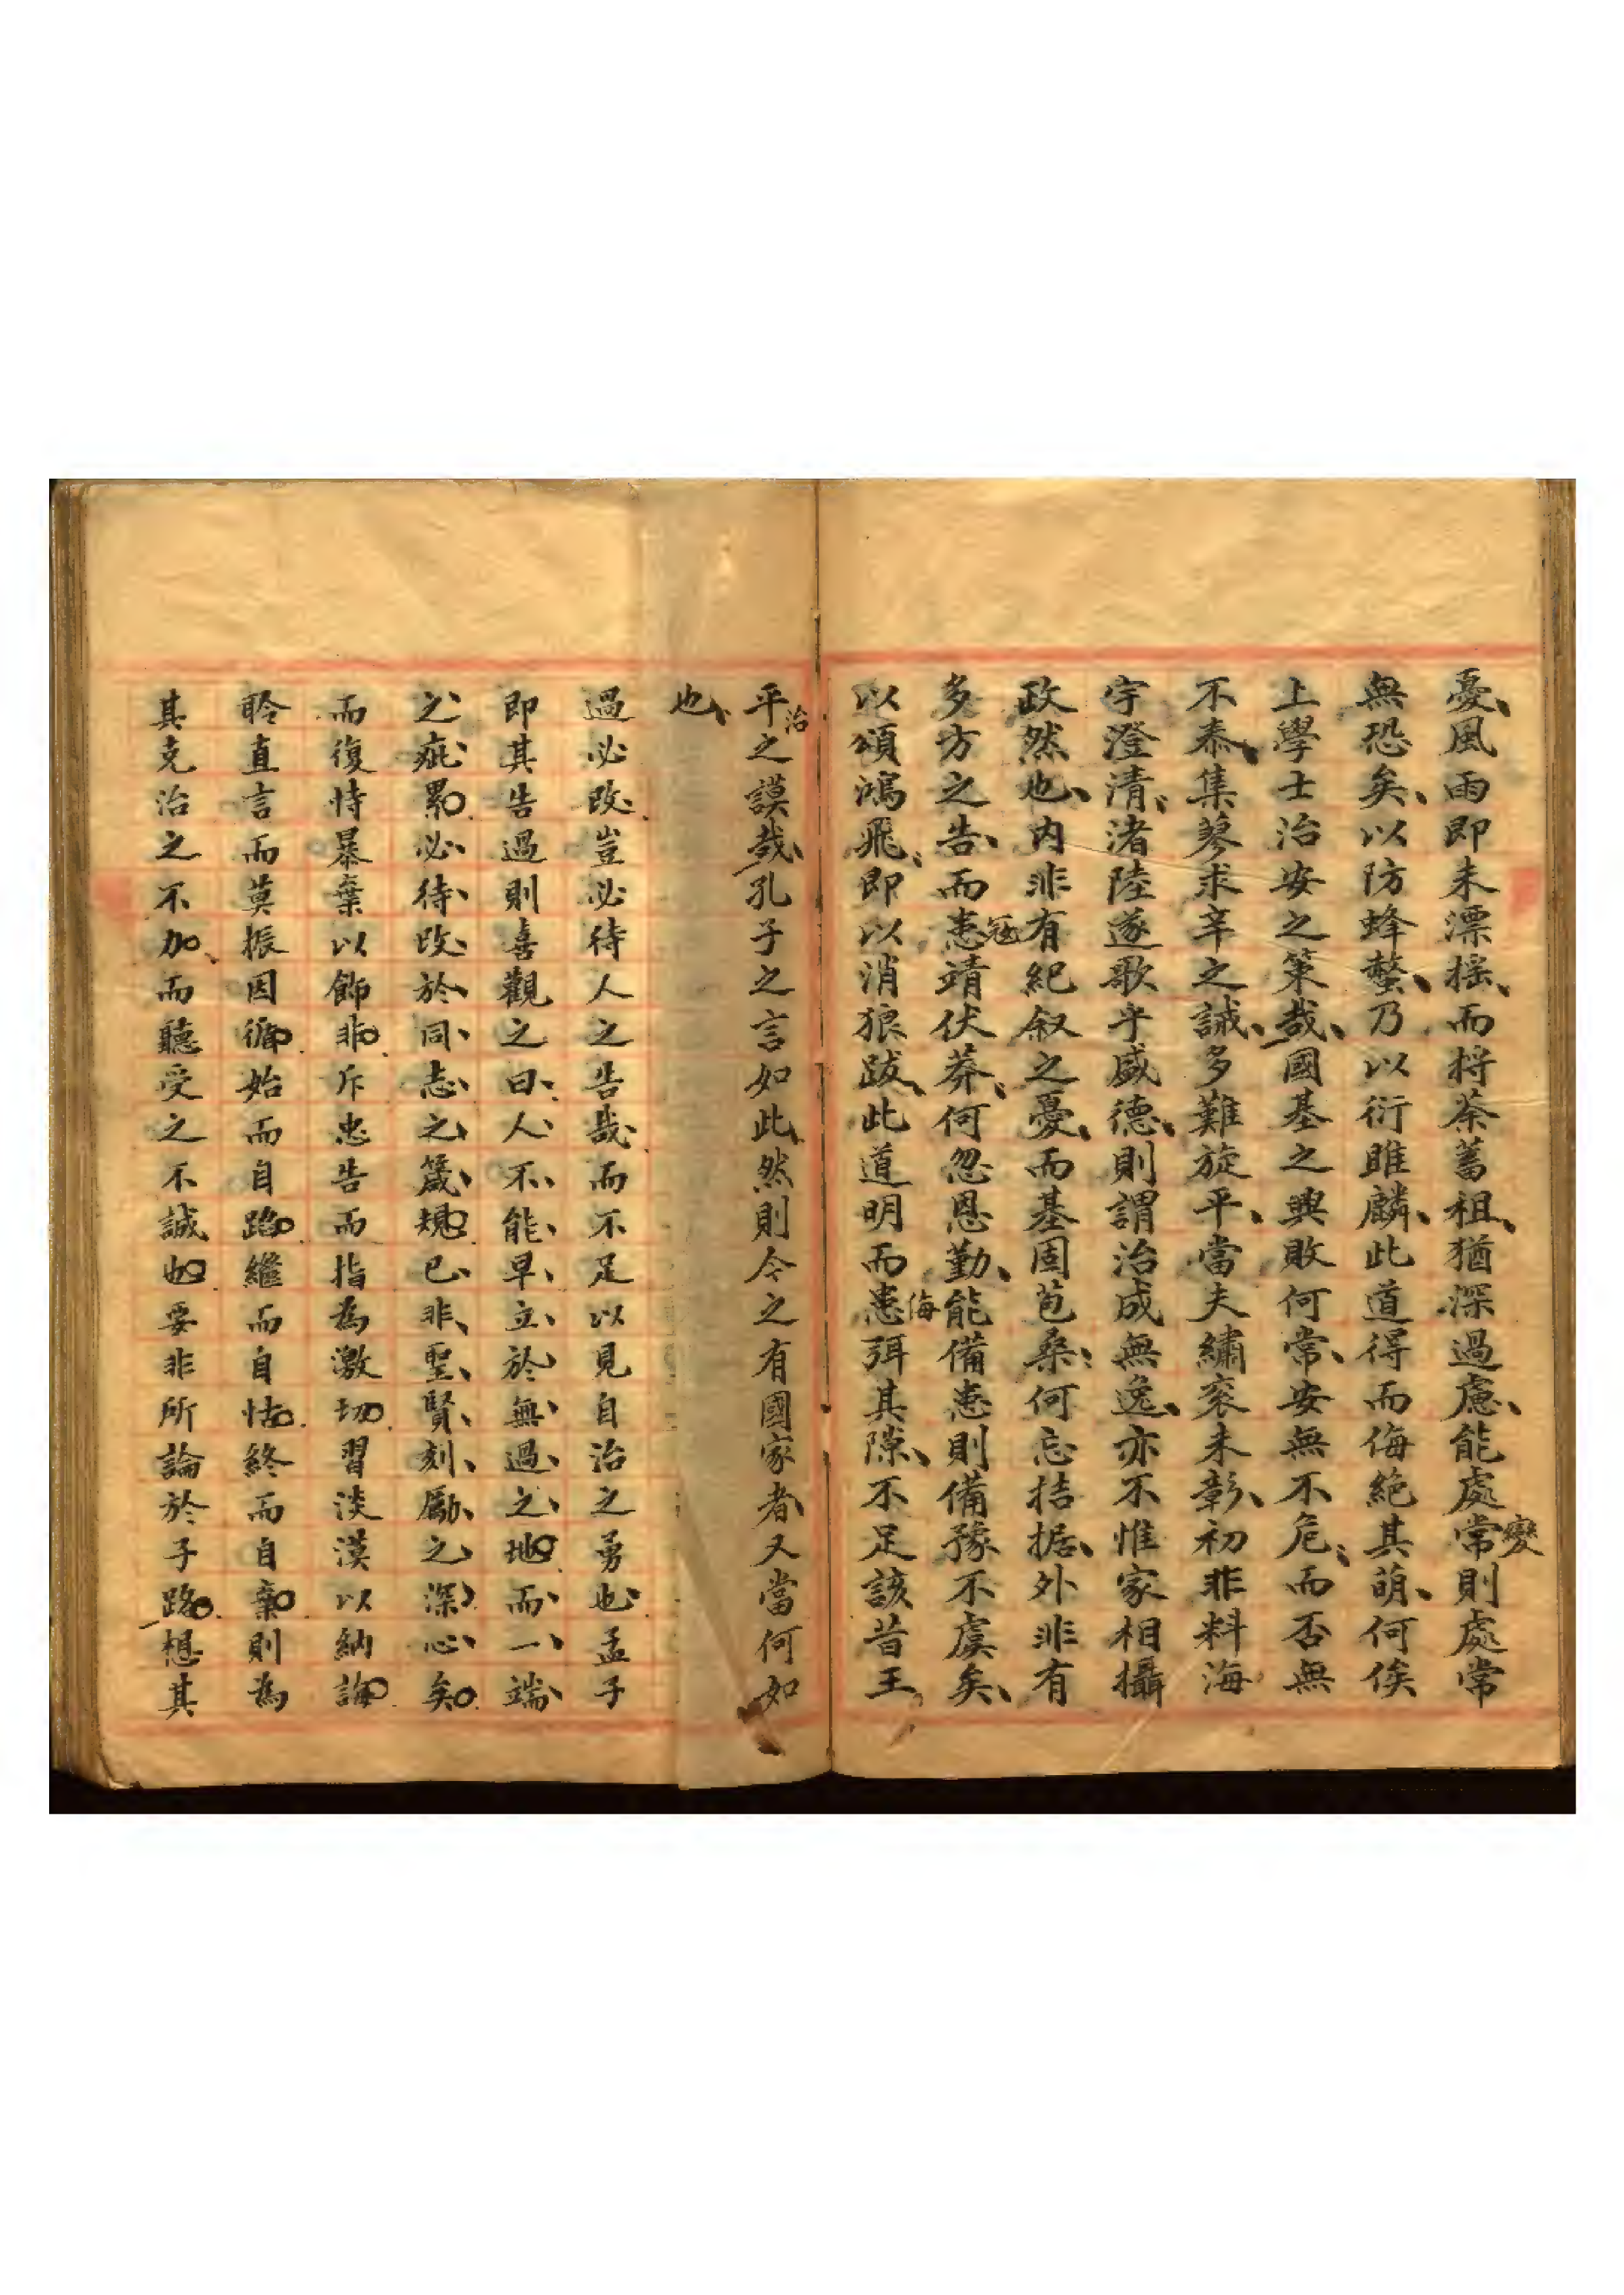 憂風雨即未漂搖而捋荼蓄租猶深過慮能處常變則處常
無恐矣以防蜂螫乃以衍雎麟此道得而侮絕其萌何俟
上學士治安之策哉國基之興敗何常安無不危而否無
不泰集蓼求辛之誠多難旋平當夫繡衮未彰初非料海
宇澄清渚陸遂歌乎盛德則謂治成無逸亦不惟家相攝
政然也內非有紀叙之憂而基固苞桑何忘拮据外非有
多方之告而患寇靖伏莽何忽恩勤能備患則備豫不虞矣
以頌鴻飛即以消狼跋此道明而患侮弭其隙不足該昔王
平治之謨哉孔子之言如此然則今之有國家者又當何如
也
過必改豈必待人之告哉而不足以見自治之勇也孟子
即其告過則喜觀之曰人不能早立於無過之地而一端
之疵累必待改於同志之箴規已非聖賢刻勵之深心矣
而復恃暴棄以飾非斥忠告而指為激切習淡漠以納誨
聆直言而莫振因循始而自蹈繼而自怙終而自棄則為
其克治之不加而聽受之不誠也要非所論於子路想其